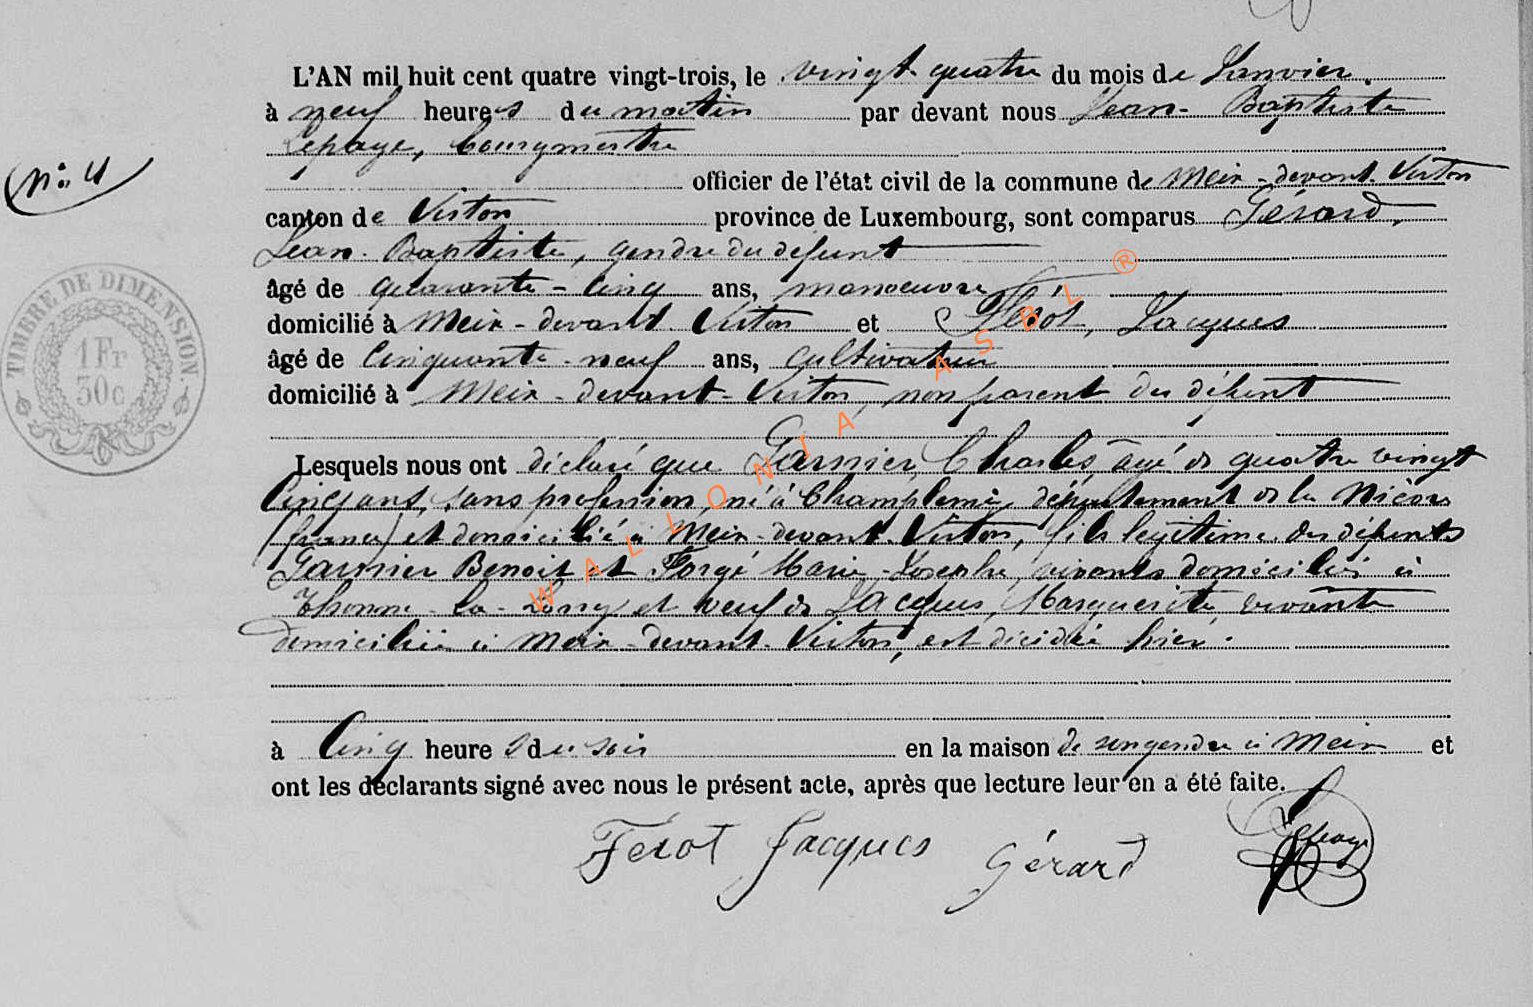 L'AN mil huit cent quatre vingt-trois, le vingt quatre du mois de Janvier.
à neuf heures du matin par devant nous Jean-Baptiste
Lepage, bourgmestre
N° 4
officier de l'état civil de la commune de Meix-devant-Virton
canton de Virton province de Luxembourg, sont comparus Gérard,
Jean-Baptiste, gendre du défunt
âgé de quarante-cinq ans, manoeuvre
domicilié à Meix-devant Virton et Férot, Jacques
âgé de cinquante-neuf ans, cultivateur
domicilié à Meix-devant-Virton, non parent du défunt
TIMBRE DE DIMENSION.
1 Fr
30c
Lesquels nous ont déclaré que Garnier, Charles, âgé de quatre vingt
cinq ans, sans profession, né à Champlemy, département de la Nièvre
(france) et domicilié à Meix-devant-Virton, fils légitime des défunts
Garnier Benoit et Forgé Marie-Josephe, vivants domiciliés à
Thonne-la-Long et veuf de Jacques, Marguerite, vivante
domiciliée à Meix-devant-Virton, est décédé hier.
à cinq heures du soir en la maison de son gendre à Meix et
ont les déclarants signé avec nous le présent acte, après que lecture leur en a été faite.
Férot Jacques Gérard Lepage
WALLONIA ASBL ®